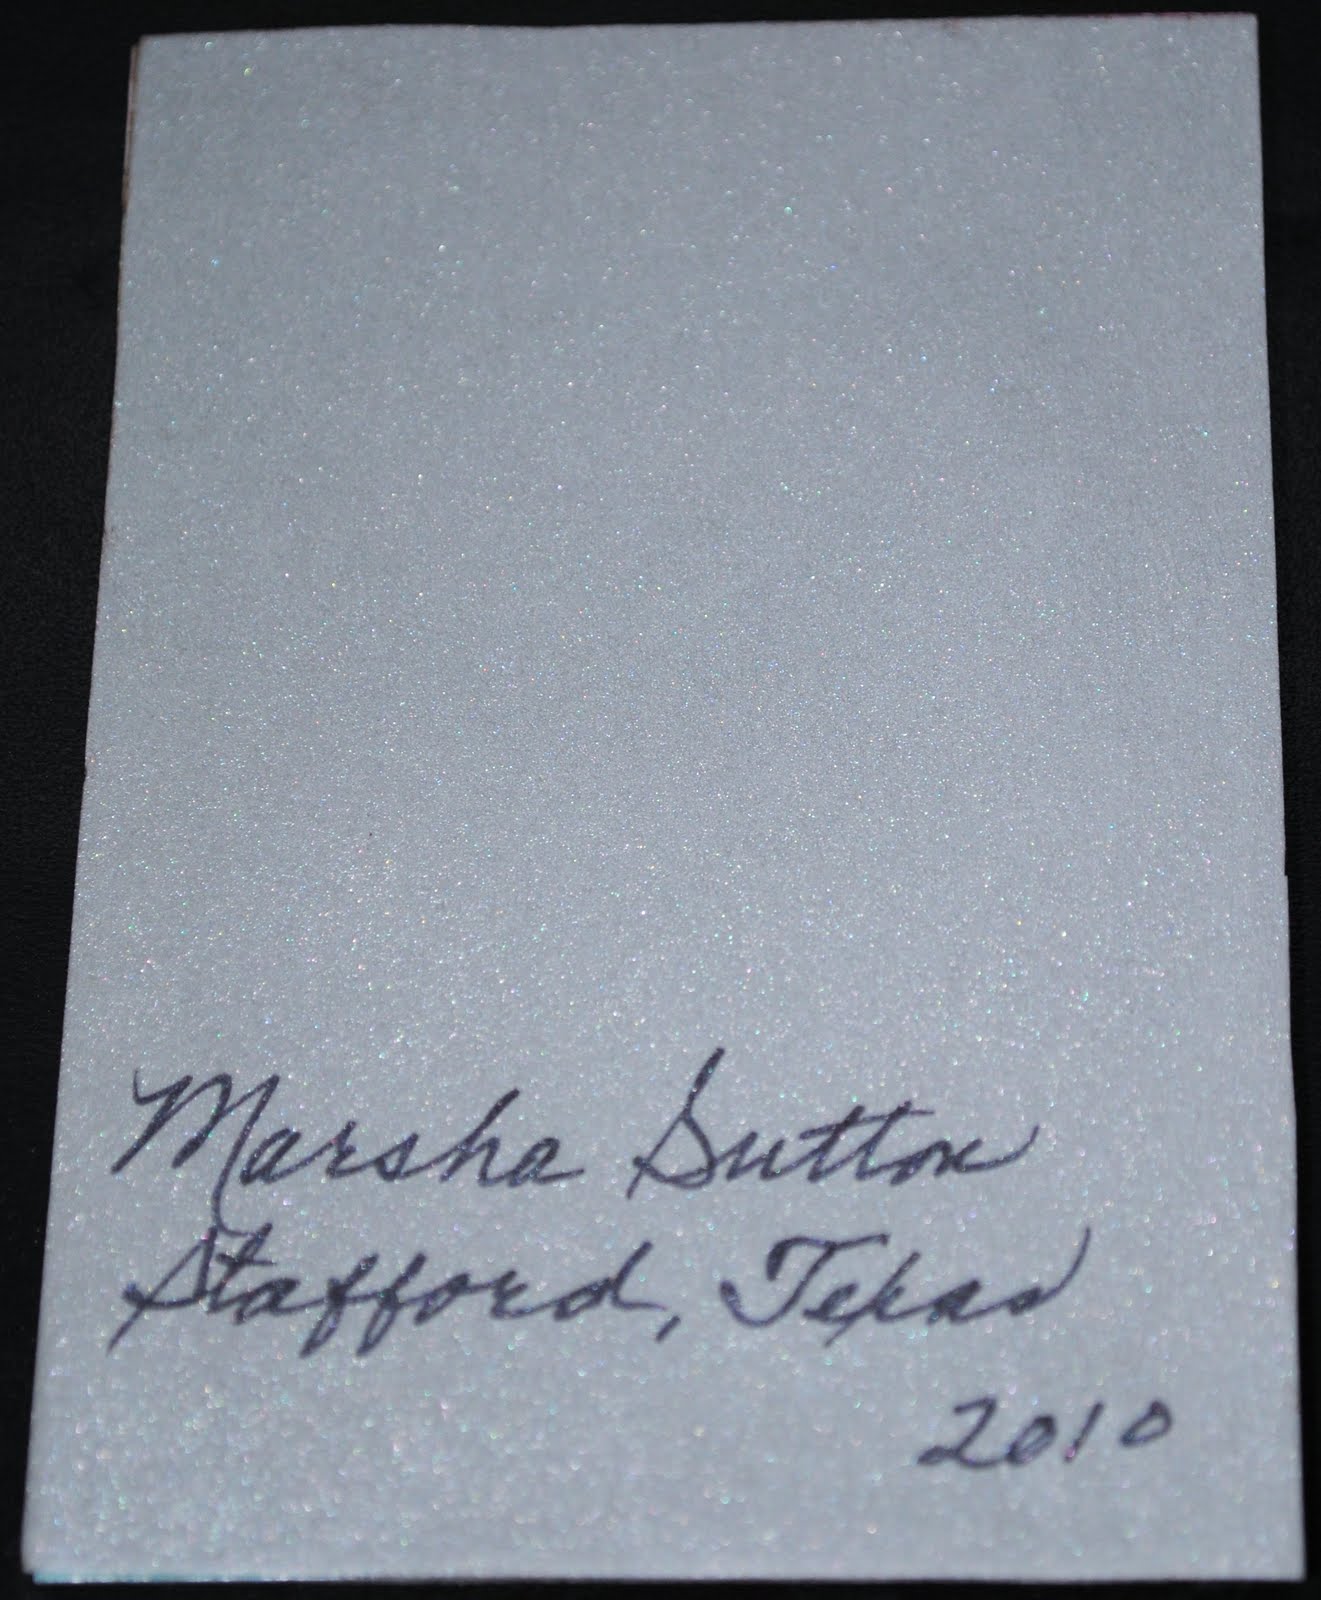 Marsha Sutton
Stafford, Texas
2010